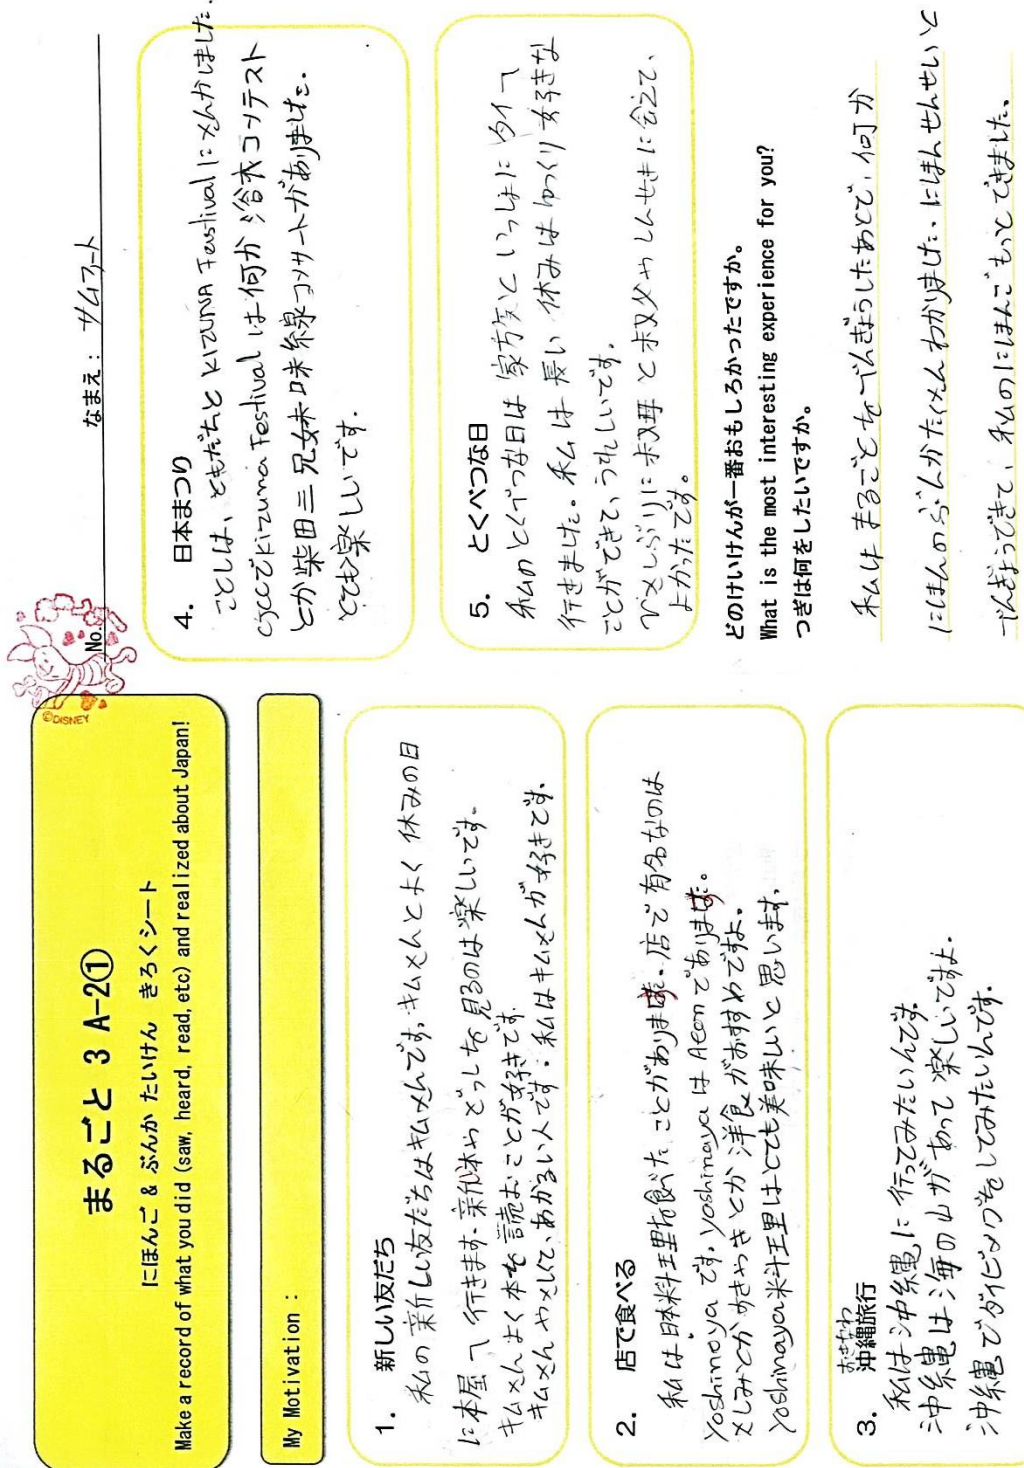 まるごと 3 A-2①
にほんご & ぶんか たいけん きろくシート
Make a record of what you did (saw, heard, read, etc) and realized about Japan!
©DISNEY
No.
なまえ：サムアート
My Motivation :
1. 新しい友だち
私の新しい友だちはキムさんです。キムさんとよく休みの日
に本屋へ行きます。新しい本やざっしを見るのは楽しいです。
キムさんよく本を読むことが好きです。
キムさんやさして、あかるい人です。私はキムさんが好きです。
2. 店で食べる
私は日本料理を食べたことがあります。店で有名なのは
Yoshinoyaです。YoshinoyaはAeonであります。
さしみとかすきやきとか洋食がおすすめですよ。
Yoshinoya料理はとても美味しいと思います。
3. 沖縄旅行
おきなわ
私は沖縄に行ってみたいんです。
沖縄は海の山があって楽しいですよ。
沖縄でダイビングをしてみたいんです。
4. 日本まつり
ことしは、ともだちとKIZUNA Festivalにさんかしました。
CJCCでKizuna Festivalは何か浴衣コンテスト
とか柴田三兄妹味線コンサートがありました。
とても楽しいです。
5. とくべつな日
私のとくべつな日は家族といっしょにタイへ
行きました。私は長い休みはゆっくり好きな
ことができて、うれしいです。
ひさしぶりに叔母と叔父やしんせきに会えて、
よかったです。
どのけいけんが一番おもしろかったですか。
What is the most interesting experience for you?
つぎは何をしたいですか。
私はまるごとをべんぎょうしたあとで、何か
にほんのぶんかたくさんわかりました。にほんせんせいと
べんぎょうできて、私のにほんごもっとできました。